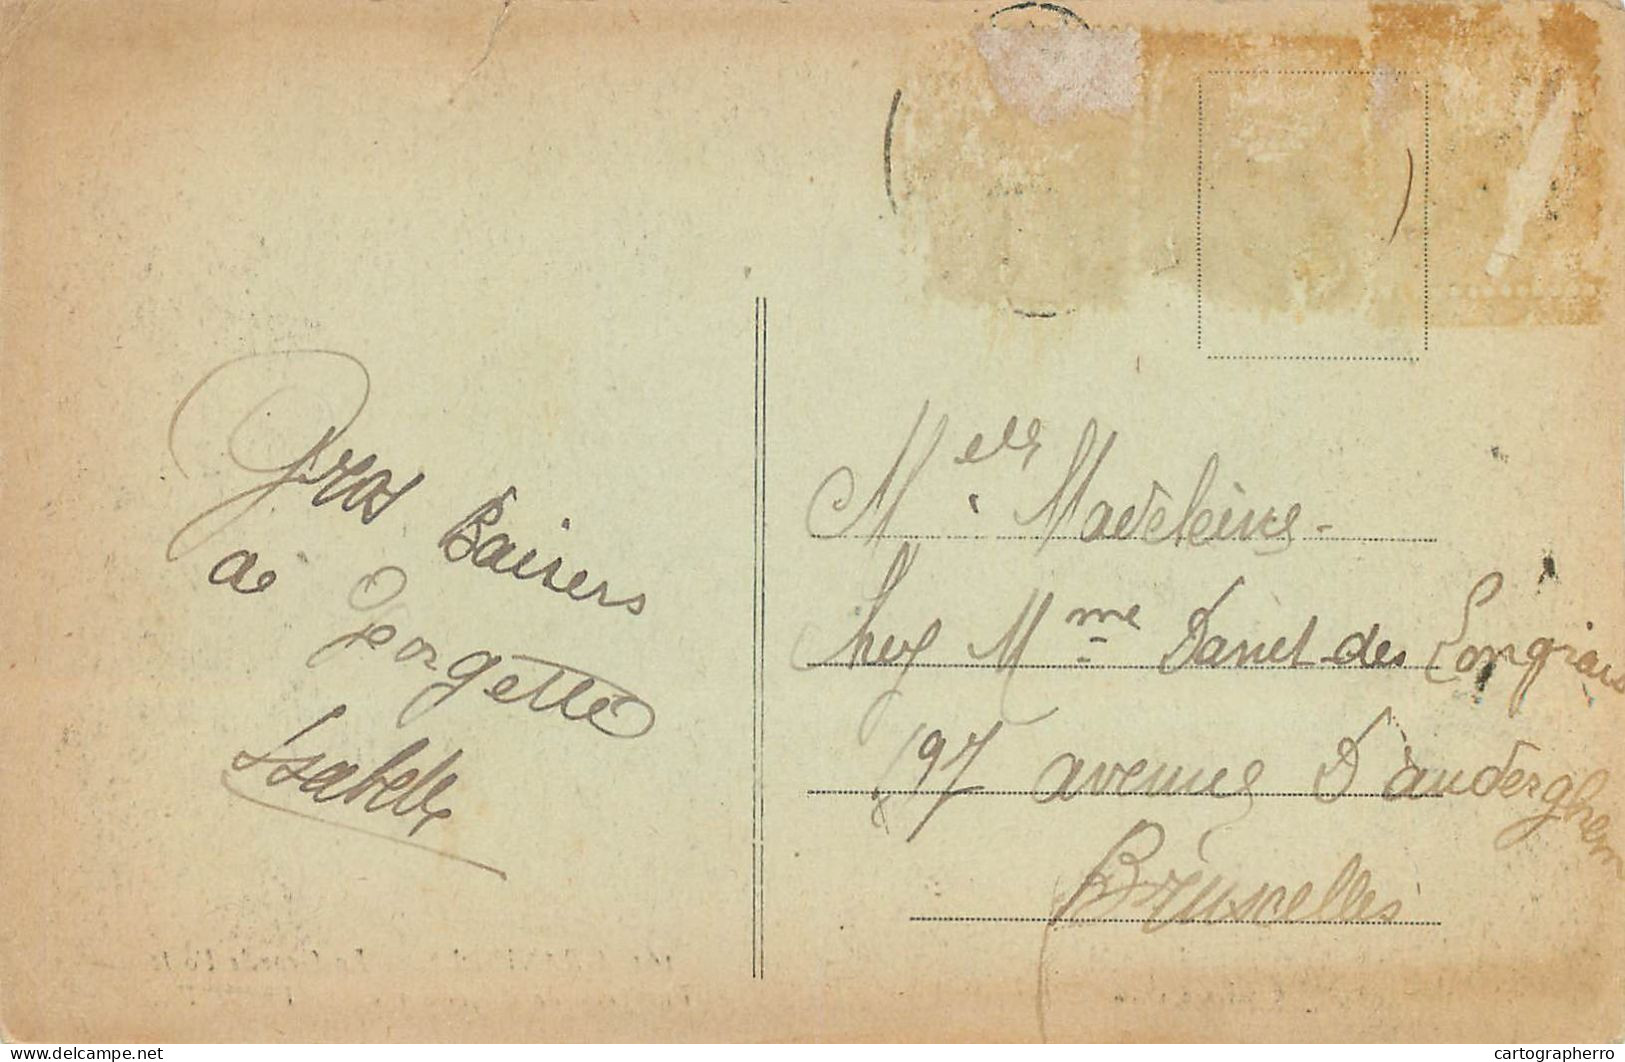 Gros Baisers
à Georgette
Isabelle
Melle Madeleine -
Chez Mme Danet des Longrais
197 avenue D'auderghem
Bruxelles
delcampe.net
cartographerro